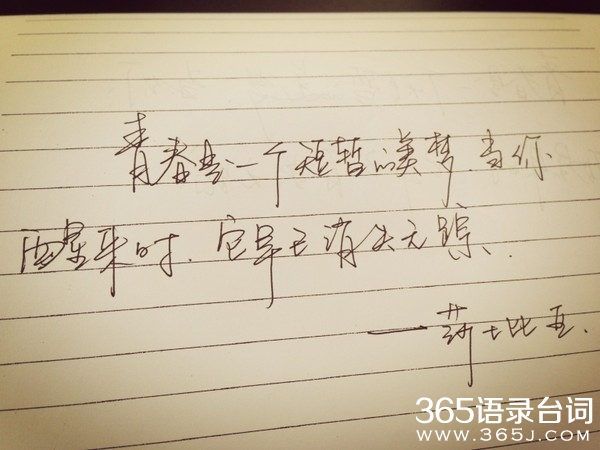 青春是一个短暂的美梦.当你
酒醒来时.它早已消失无踪.
——莎士比亚.
365语录台词
www.365J.com